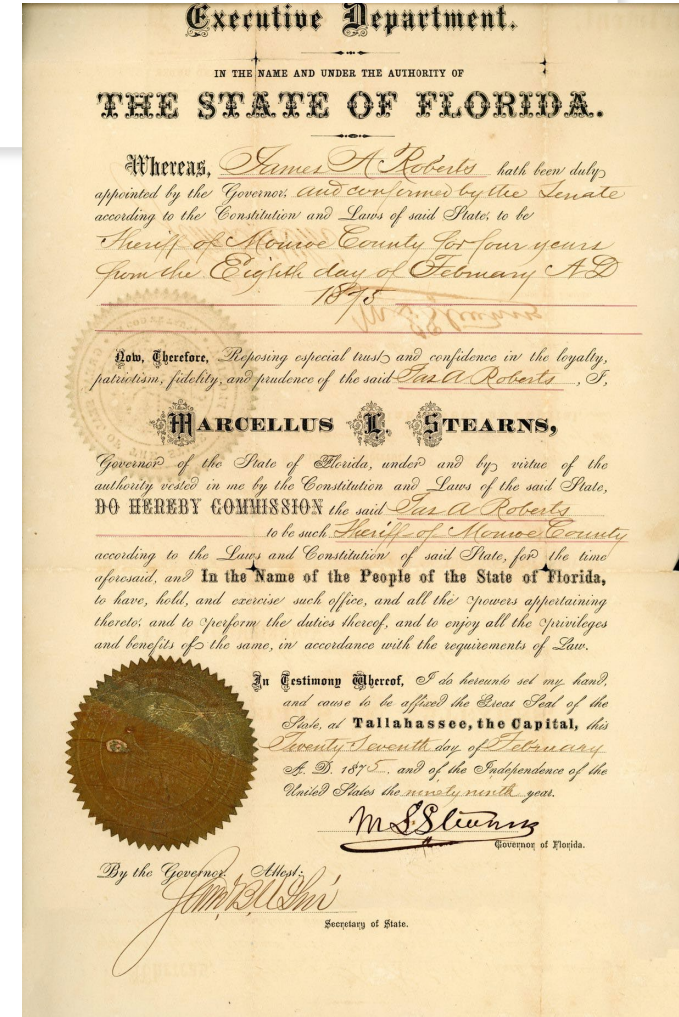 Executive Department.
IN THE NAME AND UNDER THE AUTHORITY OF
THE STATE OF FLORIDA.
Whereas, James A Roberts hath been duly
appointed by the Governor, and confirmed by the Senate
according to the Constitution and Laws of said State, to be
Sheriff of Monroe County for four years
from the Eighth day of February A D
1875
Now, Therefore, Reposing especial trust and confidence in the loyalty,
patriotism, fidelity, and prudence of the said Jas A Roberts, I,
MARCELLUS L. STEARNS,
Governor of the State of Florida, under and by virtue of the
authority vested in me by the Constitution and Laws of the said State,
DO HEREBY COMMISSION the said Jas A Roberts
to be such Sheriff of Monroe County
according to the Laws and Constitution of said State, for the time
aforesaid, and In the Name of the People of the State of Florida,
to have, hold, and exercise such office, and all the powers appertaining
thereto, and to perform the duties thereof, and to enjoy all the privileges
and benefits of the same, in accordance with the requirements of Law.
In Testimony Whereof, I do hereunto set my hand,
and cause to be affixed the Great Seal of the
State, at Tallahassee, the Capital, this
Twenty Seventh day of February
A. D. 1875, and of the Independence of the
United States the ninety ninth year.
M L Stearns
Governor of Florida.
By the Governor: Attest:
Secretary of State.